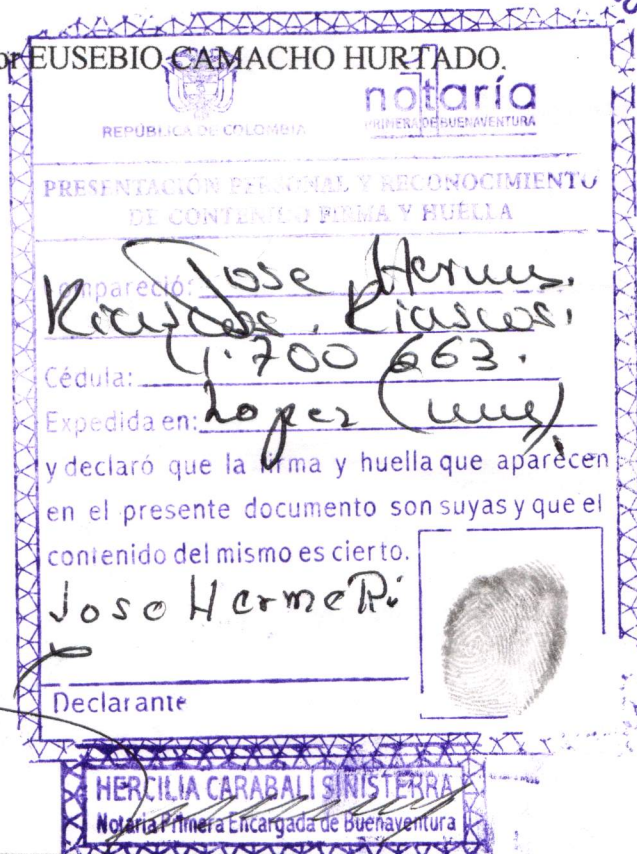 or EUSEBIO CAMACHO HURTADO.
REPÚBLICA DE COLOMBIA
notaría
PRIMERA DE BUENAVENTURA
PRESENTACIÓN PERSONAL Y RECONOCIMIENTO
DE CONTENIDO FIRMA Y HUELLA
Compareció: Jose
Riascos. Riascos.
Cédula: 700 663.
Expedida en: Lopez
y declaró que la firma y huella que aparecen
en el presente documento son suyas y que el
contenido del mismo es cierto.
Jose Herme Ri
Declarante
HERCILIA CARABALI SINISTERRA
Notaria Primera Encargada de Buenaventura